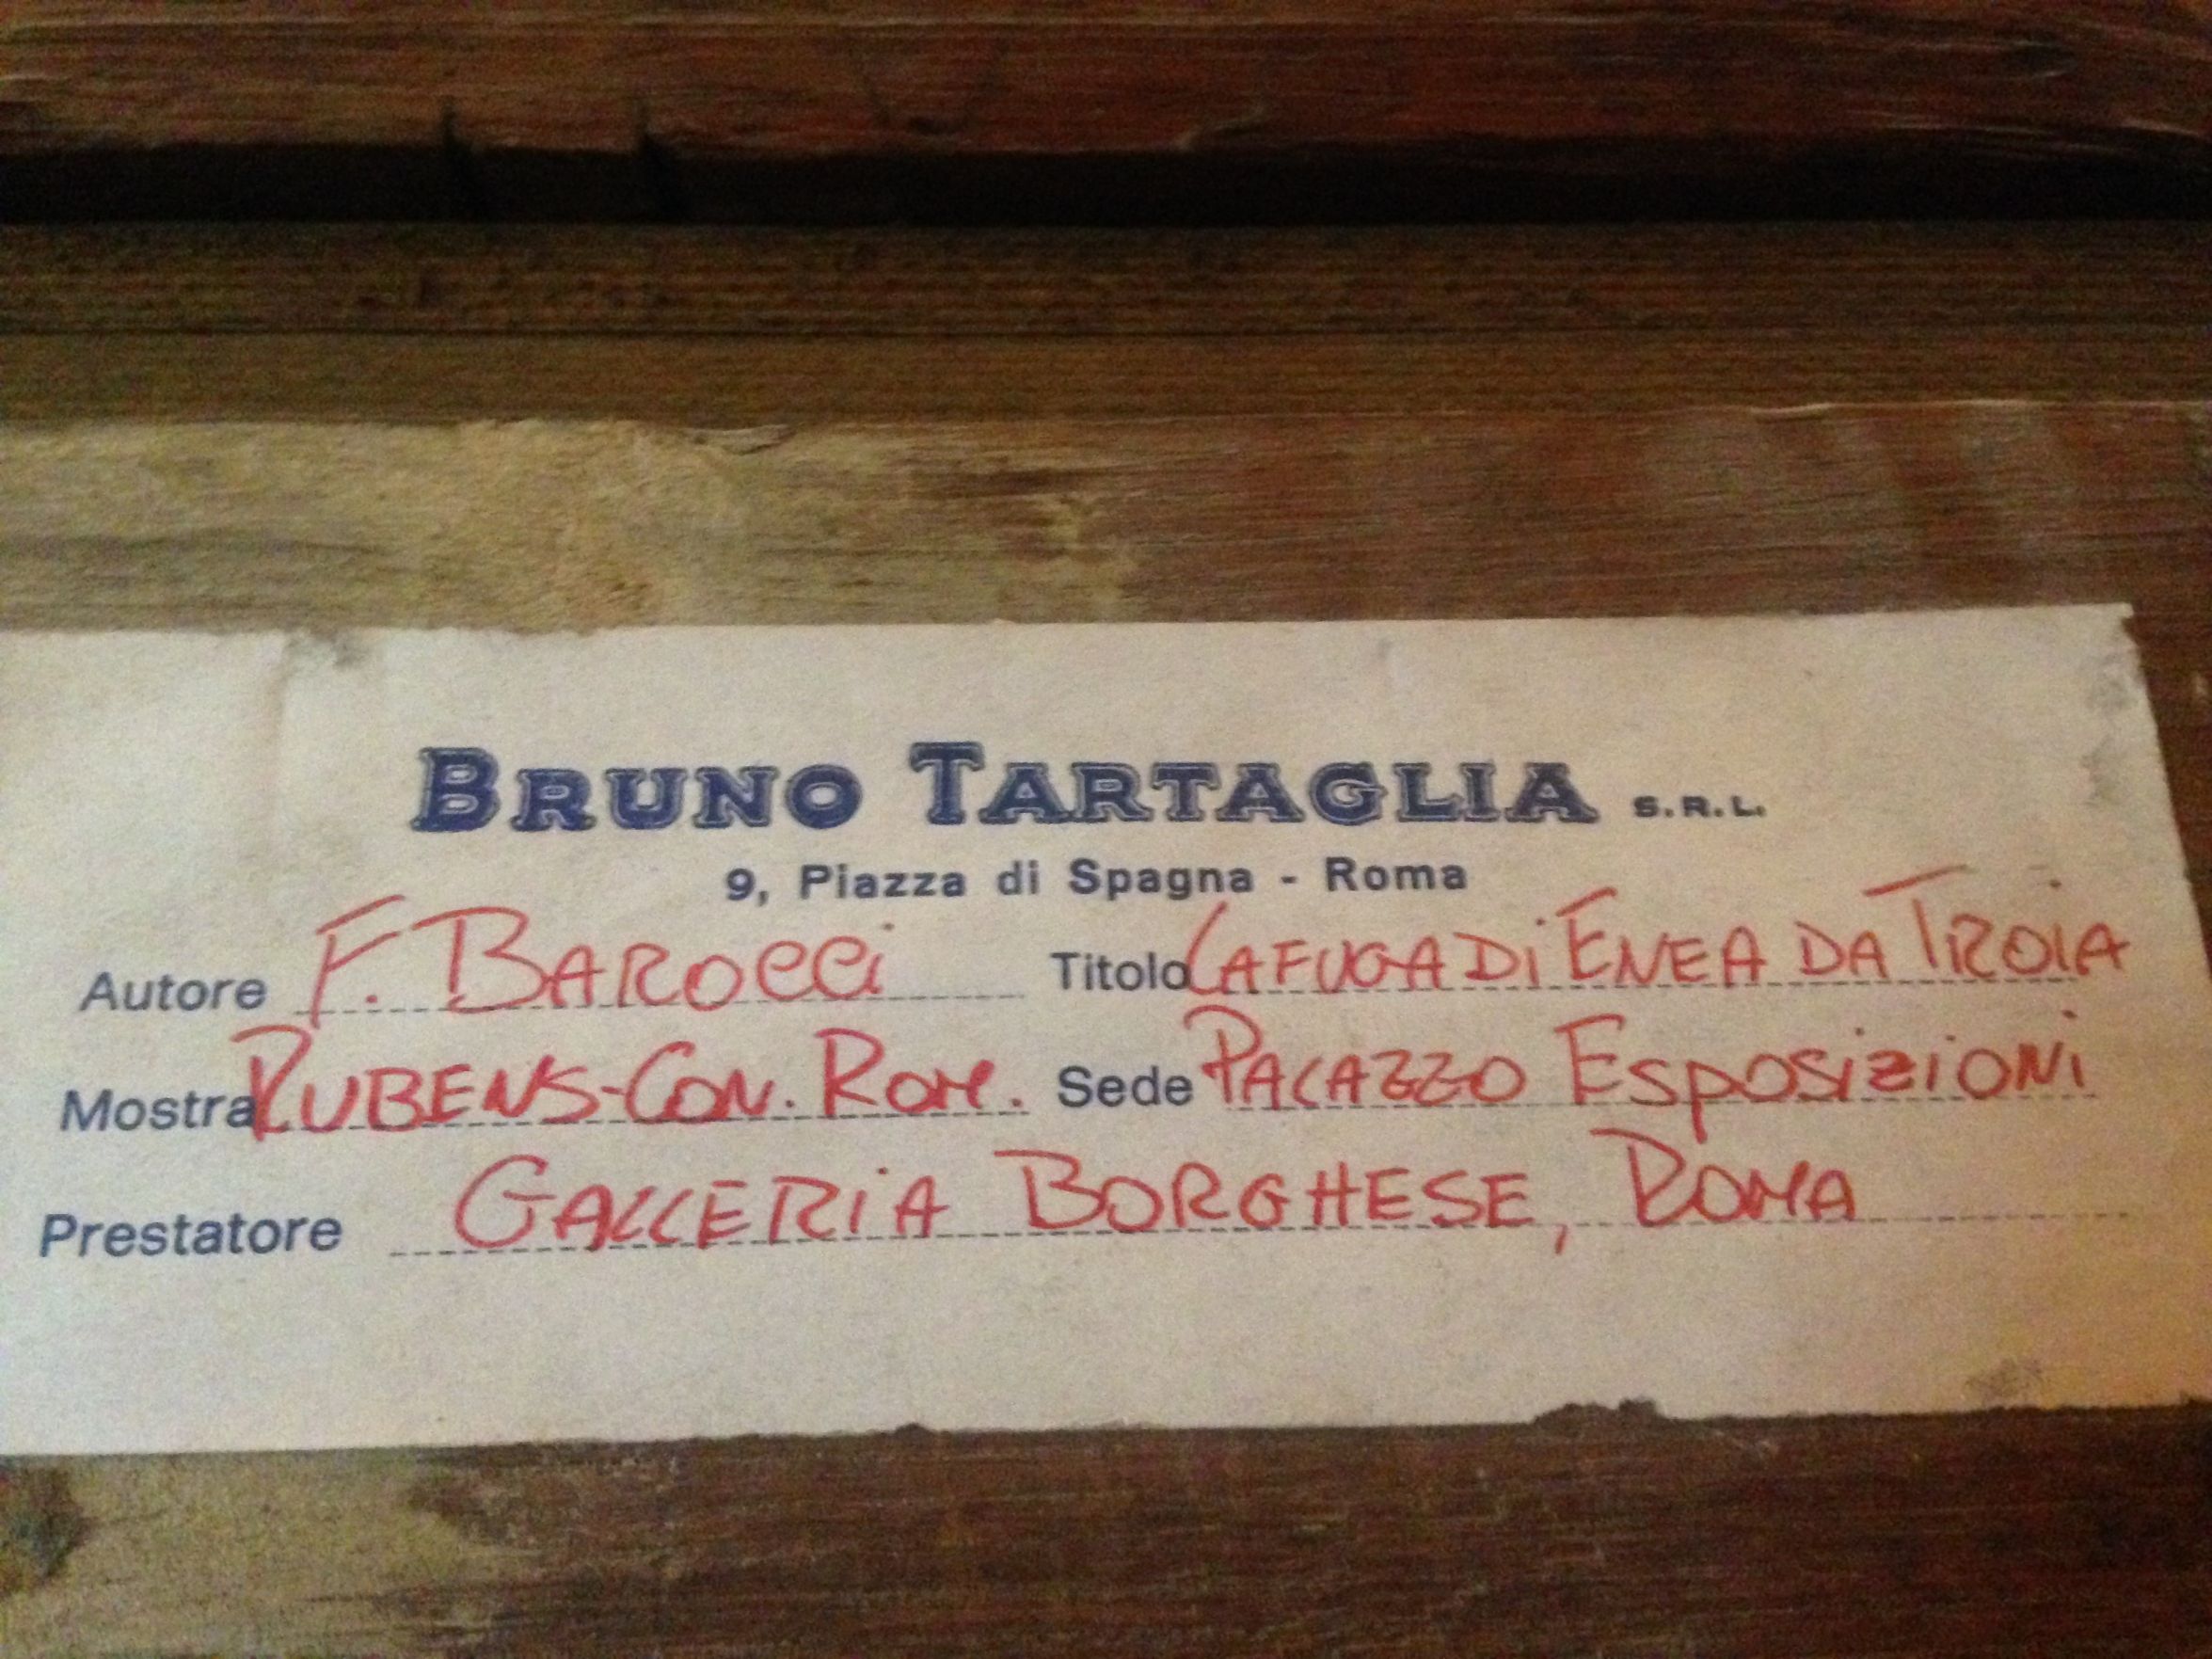 BRUNO TARTAGLIA S.R.L.
9, Piazza di Spagna - Roma
Autore F. BAROCCI Titolo LA FUGA DI ENEA DA TROIA
Mostra RUBENS-CON. ROM. Sede PALAZZO ESPOSIZIONI
Prestatore GALLERIA BORGHESE, ROMA